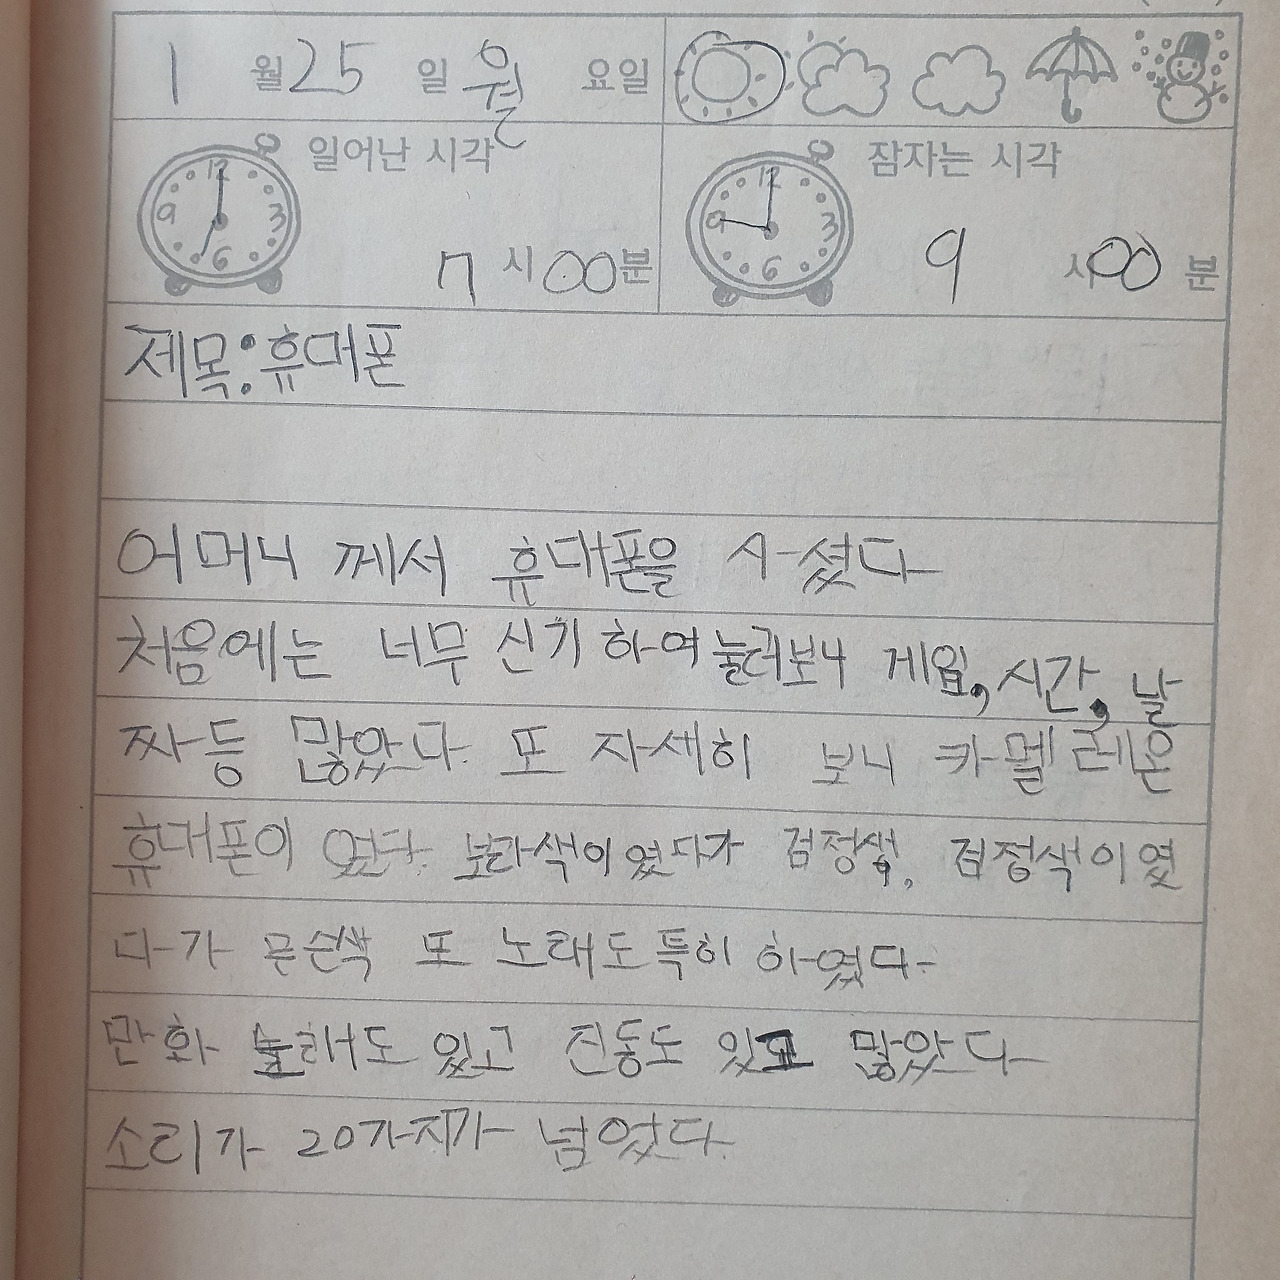 1 월 25 일 월 요일
일어난 시각 잠자는 시각
12 3 6 9 12 3 6 9
7 시 00 분 9 시 00 분
제목:휴대폰
어머니 께서 휴대폰을 사셨다
처음에는 너무 신기 하여 눌러보니 게임, 시간, 날
짜등 많았다. 또 자세히 보니 카멜레온
휴대폰이 였다. 보라색이였다가 검정색, 검정색이였
다가 은색 또 노래도 특히 하였다.
만화 노래도 있고 진동도 있고 많았다
소리가 20가지가 넘었다.